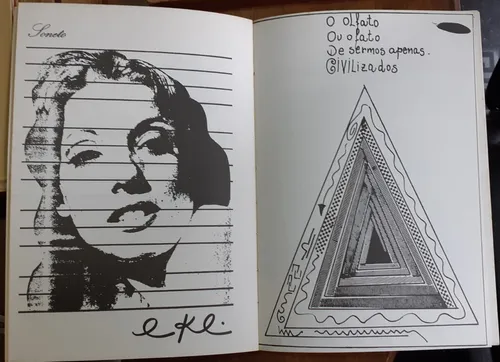 Soneto
O OLfato
Ou o fato
De sermos apenas.
CIVILizados